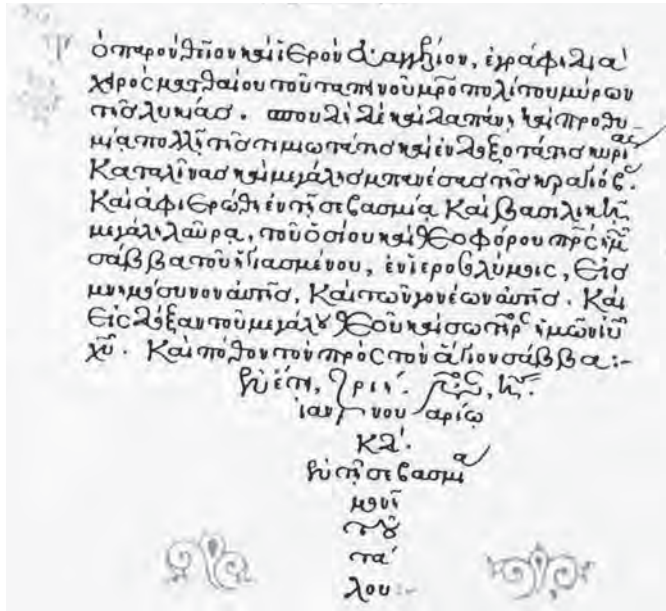 Τὸ παρὸν θεῖον καὶ ἱερὸν εὐαγγέλιον, ἐγράφι διὰ
χειρὸς ματθαίου τοῦ ταπεινοῦ μρ̅οπολίτου μύρων
τῆσ λυκίασ. σπουδῆ δὲ καὶ δαπάνη, καὶ προθυ
μία πολλῆ τῆσ τιμιωτάτησ καὶ ἐνδοξοτάτησ κυρίας
Καταλίνασ καὶ μεγάλησ μπανέσασ τῆσ κραγιόβ.
Καὶ ἀφιερώθη ἐν τῆ σεβασμία Καὶ βασιλικῆ
μεγάλη λαύρα, τοῦ ὁσίου καὶ θεοφόρου πρ̅ς ἡμ
σάββα τοῦ ἡγιασμένου, ἐν ἱεροσλύμοις, Εἰσ
μνημόσυνον ἀυτῆσ, Καὶ τῶν γονέων ἀυτῆσ. Καὶ
Εἰς δόξαν τοῦ μεγάλου θεοῦ καὶ σωτῆρς ἡμῶν ἰυ̅
χυ̅. Καὶ πόθον τὸν πρὸς τὸν ἅγιον σάββα:-
ἐν ἔτη, ζριν΄.
ἰαννουαρίω
κδ΄.
ἐν τῆ σεβασμία
μονῆ
τοῦ
δά
λου:-